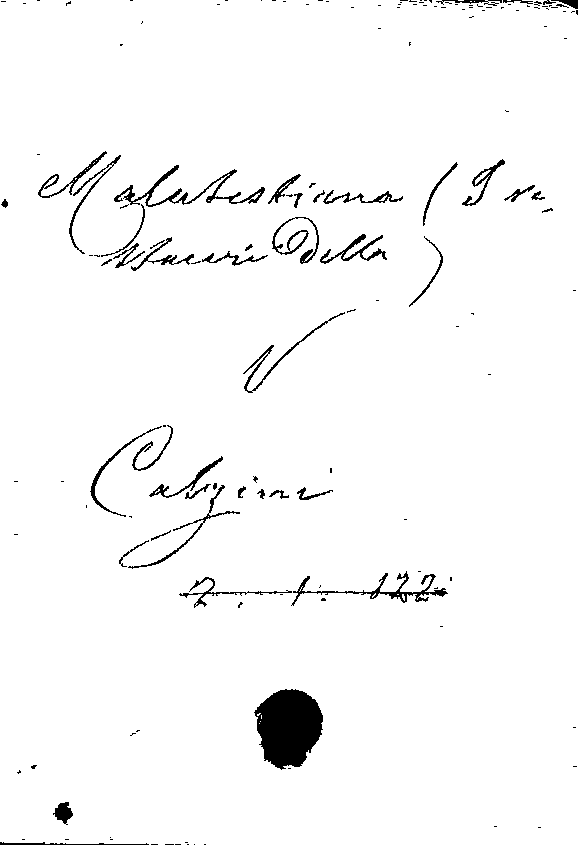 Malatestiana (I
Della )
V
Calzini
2. 1. 122